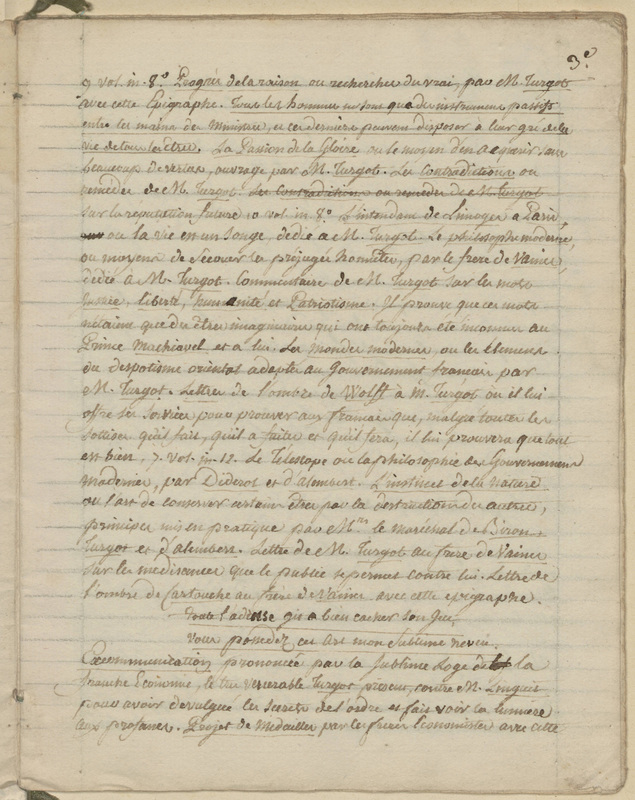 3.e
9 vol. in. 8.o Progrès de la raison ou recherches du vrai, par M. Turgot
avec cette Epigraphe. Tous les hommes ne sont que des instrumens passifs
entre les mains de Ministres, et ces derniers peuvent disposer à leur gré de la
vie de tous les Etres. La Passion de la Gloire ou le moyen d'en acquérir sans
beaucoup de vertus, ouvrage par M. Turgot. Les Contradictions ou
remedes de M. Turgot. Les Contradictions ou remedes de M. Turgot
sur la reputation future 10 vol. in. 8.o L'intendant de Limoges à Paris,
ou la vie en un songe, dédié à M. Turgot. Le philosophe moderne,
ou moyens de secouer les préjugés honnêtes, par le frere de Vaines,
dedié à M. Turgot. Commentaire de M. Turgot sur les mots
Justice, liberté, humanité et Patriotisme. Il prouve que ces mots
n'étaient que des êtres imaginaires qui ont toujours été inconnus au
Prince Machiavel et à lui. Les mondes modernes, ou les Elemens
du despotisme oriental adapté au Gouvernement français par
M. Turgot. Lettre de l'ombre de Wolff à M. Turgot où il lui
offre ses services pour prouver aux français que, malgré toutes les
sottises qu'il fait, qu'il a faites et qu'il fera, il lui prouvera que tout
est bien. 7. vol. in. 12. Le Télescope ou la philosophie des Gouvernemens
modernes, par Diderot et d'alembert. L'instinct de la nature
ou l'art de conserver certains êtres par la destruction des autres,
principes mis en pratique par M.rs le maréchal de Biron,
Turgot et d'alembert. Lettre de M. Turgot au frere de Vaines
sur les médisances que le public se permet contre lui. Lettre de
l'ombre de Cartouche au frere de Vaines avec cette épigraphe.
Toute l'adresse gît à bien cacher son jeu,
Vous possedez cet art mon sublime neveu.
Excommunication prononcée par la sublime Loge de la
franche Economie, le tres venerable Turgot présent, contre M. Linguet
pour avoir divulgué les secrets de l'ordre et fait voir la lumiere
aux profanes. Projet de Médailles par les freres Economistes avec cette